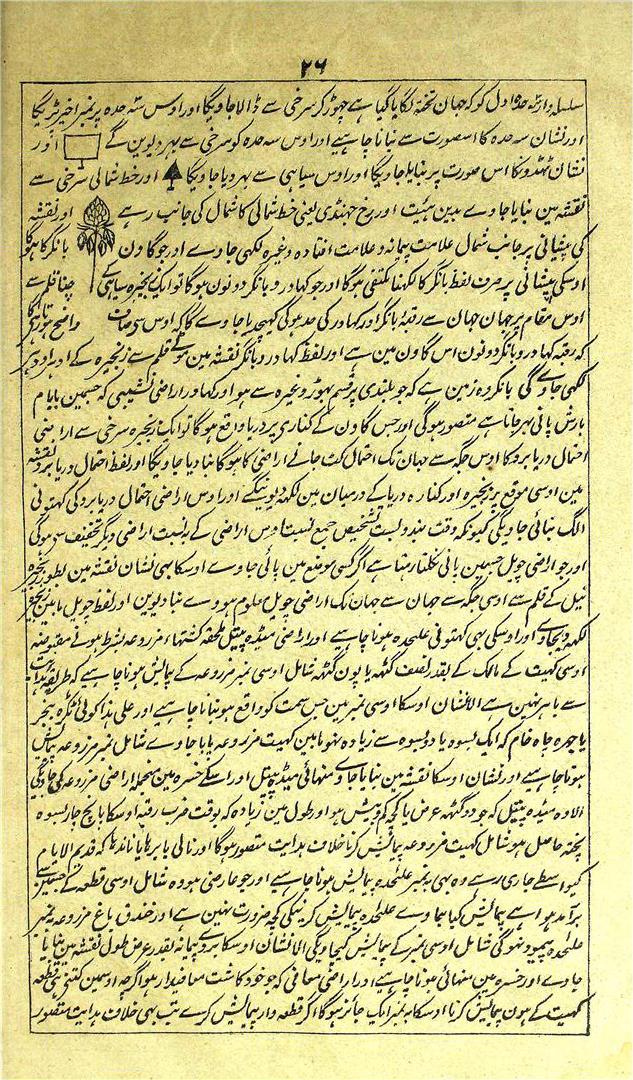 ۲۶
سلسلہ وار سہ حدہ اول کو کہ جہان تختہ لگایا گیا ہے چھوڑ کر سرخی سے ڈالا جاویگا اور اوس سہ حدہ پر نمبر اخیر پڑیگا
اور نشان سہ حدہ کا اس صورت سے بنانا چاہیے اور اوس سہ حدہ کو سرخی سے بہر دیوین گے اور
نشان تہڈونکا اس صورت پر بنایا جاویگا اور اوس سیاہی سے بہر دیا جاویگا اور خط شمالی سرخی سے
نقشہ مین بنایا جاوے بدین ہیئت اور رخ جہنڈی یعنی خط شمالی کا شمال کی جانب رہے اور نقشہ
کی پیشانی پر جانب شمال علامت پیمانہ و علامت افتادہ وغیرہ لکہی جاوے اور جو گاون بانگر کا ہوگا
اوسکی پیشانی پر صرف لفظ بانگر کا لکہنا مکتفی ہوگا اور جو کہادر و بانگر دونون ہوگا تو ایک زنجیرہ سیاہی کے
اوس مقام پر جہان جہان سے رقبہ بانگر اور کہادر کی حد ہوگی کہینچدیا جاوے گا کہ اوس سے صاف واضح ہو
کہ رقبہ کہادر و بانگر دونون اس گاون مین ہے اور لفظ کہادر و بانگر نقشہ مین موٹے قلم سے زنجیرہ کے ادہر اودہر
لکہی جاوے گی بانگر وہ زمین ہے کہ جو بلندی پر قسم بہوڑ وغیرہ سے ہو اور کہادر اراضی نشیبی کہ جسمین بایام
بارش پانی بہر جاتا ہے متصور ہوگی اور جس گاون کے کناری پر دریا واقع ہوگا تو ایک زنجیرہ سرخی سے اراضی
احتمال دریا برد کا اوس جگہ سے جہان تک احتمال کٹ جانے اراضی کا ہوگا بنا دیا جاویگا اور لفظ احتمال دریا برد نقشہ
مین اوسی موقع پر زنجیرہ اور کنارہ دریا کے درمیان مین لکہہ دیوینگے اور اوس اراضی احتمال دریا برد کی کہتونی
الگ بنائی جاویگی کیونکہ وقت بندوبست تشخیص جمع نسبت اوس اراضی کے بہ نسبت اراضی دیگر تخفیف سے ہوگی
اور جو اراضی جہیل جسمین پانی نکلتا رہتا ہے اگر کسی موضع مین پائی جاوے اوسکا بھی نشان نقشہ مین بطور زنجیرہ
نیل کے قلم سے اوسی جگہ سے جہان سے جہان تک اراضی جہیل معلوم ہووے بنا دیوین اور لفظ جہیل مابین زنجیرہ
لکہہ دیجاوے اور اوسکی بہی کہتونی علیحدہ ہونا چاہیے اور اراضی مینڈہ پیتل ملحقہ کہیتہا مزروعہ بشرط ہونے مقبوضہ
اوسی کہیت کے مالک کے بقدر نصف گٹھہ یا پون گٹھہ شامل اوسی نمبر مزروعہ کے پیمایش ہونا چاہیے کہ طریقہ ہدایت
سے باہر نہین ہے الا نشان اوسکا اوسی نمبر مین جس سمت کو واقع ہو بنانا چاہیے اور علی ہذا کوئی ٹکڑہ بنجر
یا حجرہ چاہ خام کہ ایک بسوہ یا دو بسوہ سے زیادہ نہو مابین کہیت مزروعہ پایا جاوے شامل نمبر مزروعہ پیمایش
ہونا چاہیے اور نشان اوسکا نقشہ مین بنایا جاوے منہائی مینڈہ پیتل اور اسکے خسرہ مین منجملہ اراضی مزروعہ کی جاویگی
الا وہ مینڈہ پیتل کہ جو دو گٹھہ عرض یا کچھہ کم و بیش ہو اور طول مین زیادہ کہ بوقت ضرب رقبہ اوسکا پانچ چار بسوہ
پختہ حاصل ہو شامل کہیت مزروعہ پیمایش کرنا خلاف ہدایت متصور ہوگا اور نالی یا برہا یا ناندہا کہ قدیم الایام
کیواسطے جاری رہے وہ بہی بہ نمبر علیحدہ پیمایش ہونا چاہیے اور جو عارضی ہو وہ شامل اوسی قطعہ کے جسمین سے
برآمد ہوا ہے پیمایش کیا جاوے علیحدہ پیمایش کرنیکی کچھہ ضرورت نہین ہے اور خندق باغ مزروعہ بہ نمبر
علیحدہ پیمود نہوگی شامل اوسی نمبر کے پیمایش کیجاویگی الا نشان اوسکا بروی پیمانہ بقدر عرض طول نقشہ مین بنایا
جاوے اور خسرہ مین منہائی ہونا چاہیے اور اراضی معافی کہ جو خود کاشت معافیدار ہو اگرچہ اوسمین کتنے ہی قطعہ
کہیت کے ہون پیمایش کرنا اوسکا بہ نمبر ایک جائز ہوگا اگر قطعہ وار پیمایش کرے تب بھی خلاف ہدایت متصور